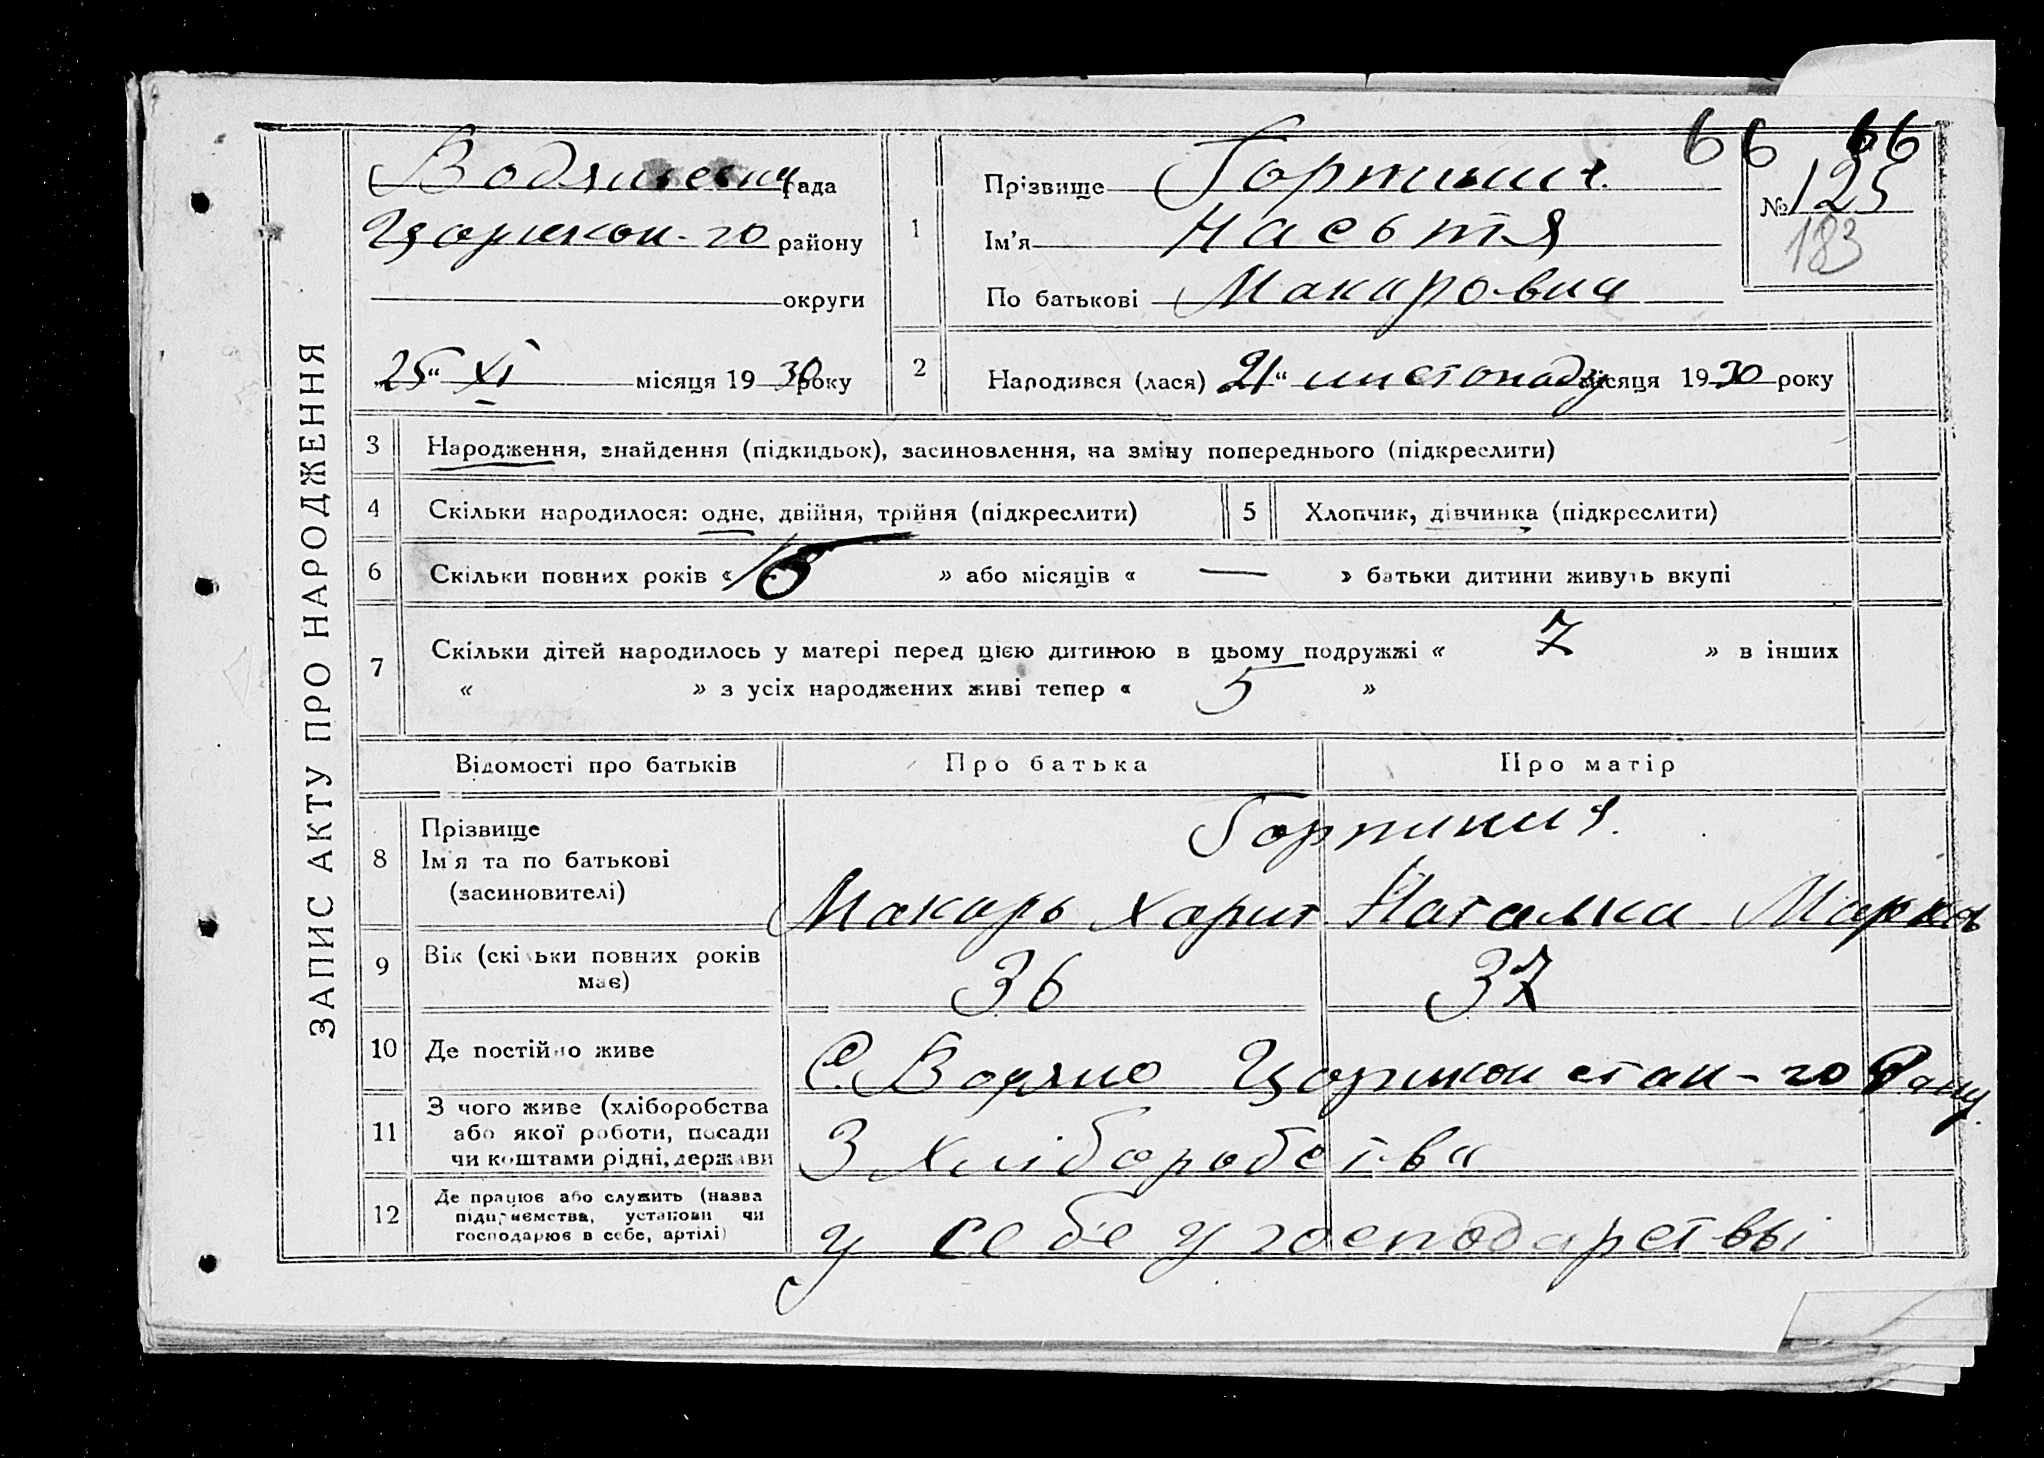 ЗАПИС АКТУ ПРО НАРОДЖЕННЯ
66 66
Водянська рада
Царичан-го району
округи
25 " XI місяця 1930 року
1
Прізвище Горпинич
Ім'я Насьтя
По батькові Макаровна
№ 125
183
2
Народився (лася) 21 " листопаду місяця 1930 року
3 Народження, знайдення (підкидьок), засиновлення, на зміну попереднього (підкреслити)
4 Скільки народилося: одне, двійня, трійня (підкреслити)
5 Хлопчик, дівчинка (підкреслити)
6 Скільки повних років « » або місяців « — » батьки дитини живуть вкупі
7 Скільки дітей народилось у матері перед цією дитиною в цьому подружжі « 7 » в інших
« » з усіх народжених живі тепер « 5 »
Відомості про батьків Про батька Про матір
8 Прізвище
Ім'я та по батькові
(засиновителі)
Горпинич
Макарь Харит Наталка Марков
9 Вік (скільки повних років
має)
36 37
10 Де постійно живе
С. Водяно Царичанстан-го Рану
11 З чого живе (хліборобства
або якої роботи, посади
чи коштами рідні, держави
З хліборобства
12 Де працює або служить (назва
підприємства, установи чи
господарює в себе, артілі)
у себе у господарстві